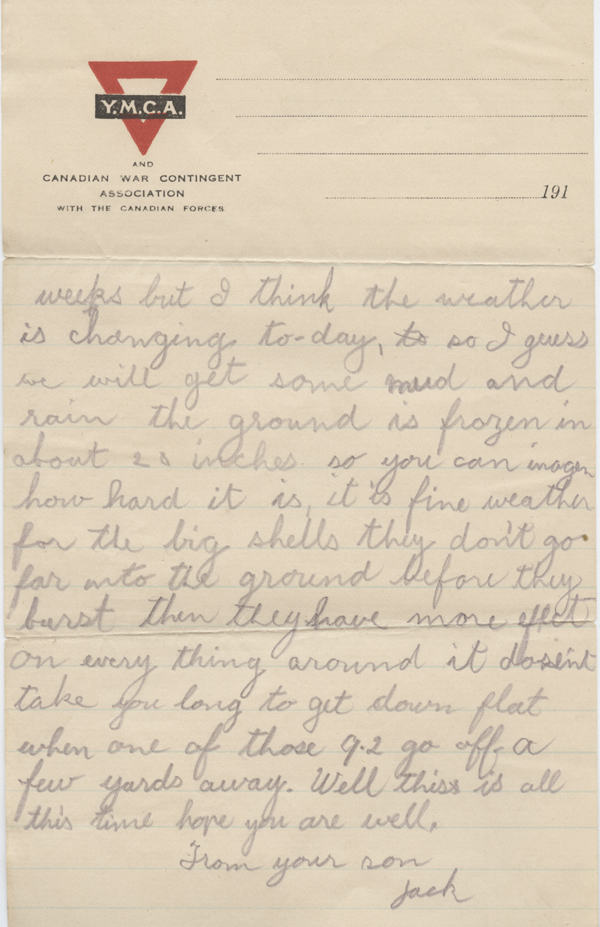 Y.M.C.A.
AND
CANADIAN WAR CONTINGENT
ASSOCIATION
WITH THE CANADIAN FORCES
191
weeks but I think the weather
is changing to-day, to so I guess
we will get some mud and
rain the ground is frozen in
about 20 inches so you can imagen
how hard it is, it is fine weather
for the big shells they don't go
far into the ground before they
burst then they have more effect
on every thing around it dosein't
take you long to get down flat
when one of those 9.2 go off a
few yards away. Well thiss is all
this time hope you are well.
From your son
Jack